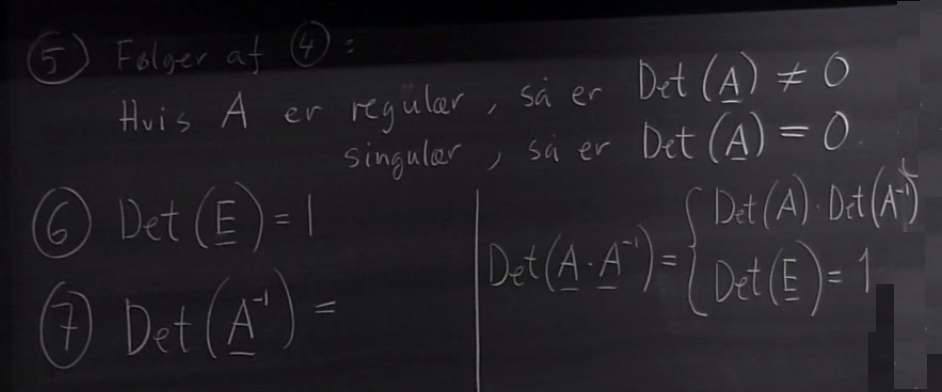 ⑤ Følger af ④:
Hvis A er regulær, så er Det(A) ≠ 0
singulær, så er Det(A) = 0.
⑥ Det(E) = 1
⑦ Det(A⁻¹) =
Det(A·A⁻¹) = { Det(A)·Det(A⁻¹)
Det(E) = 1